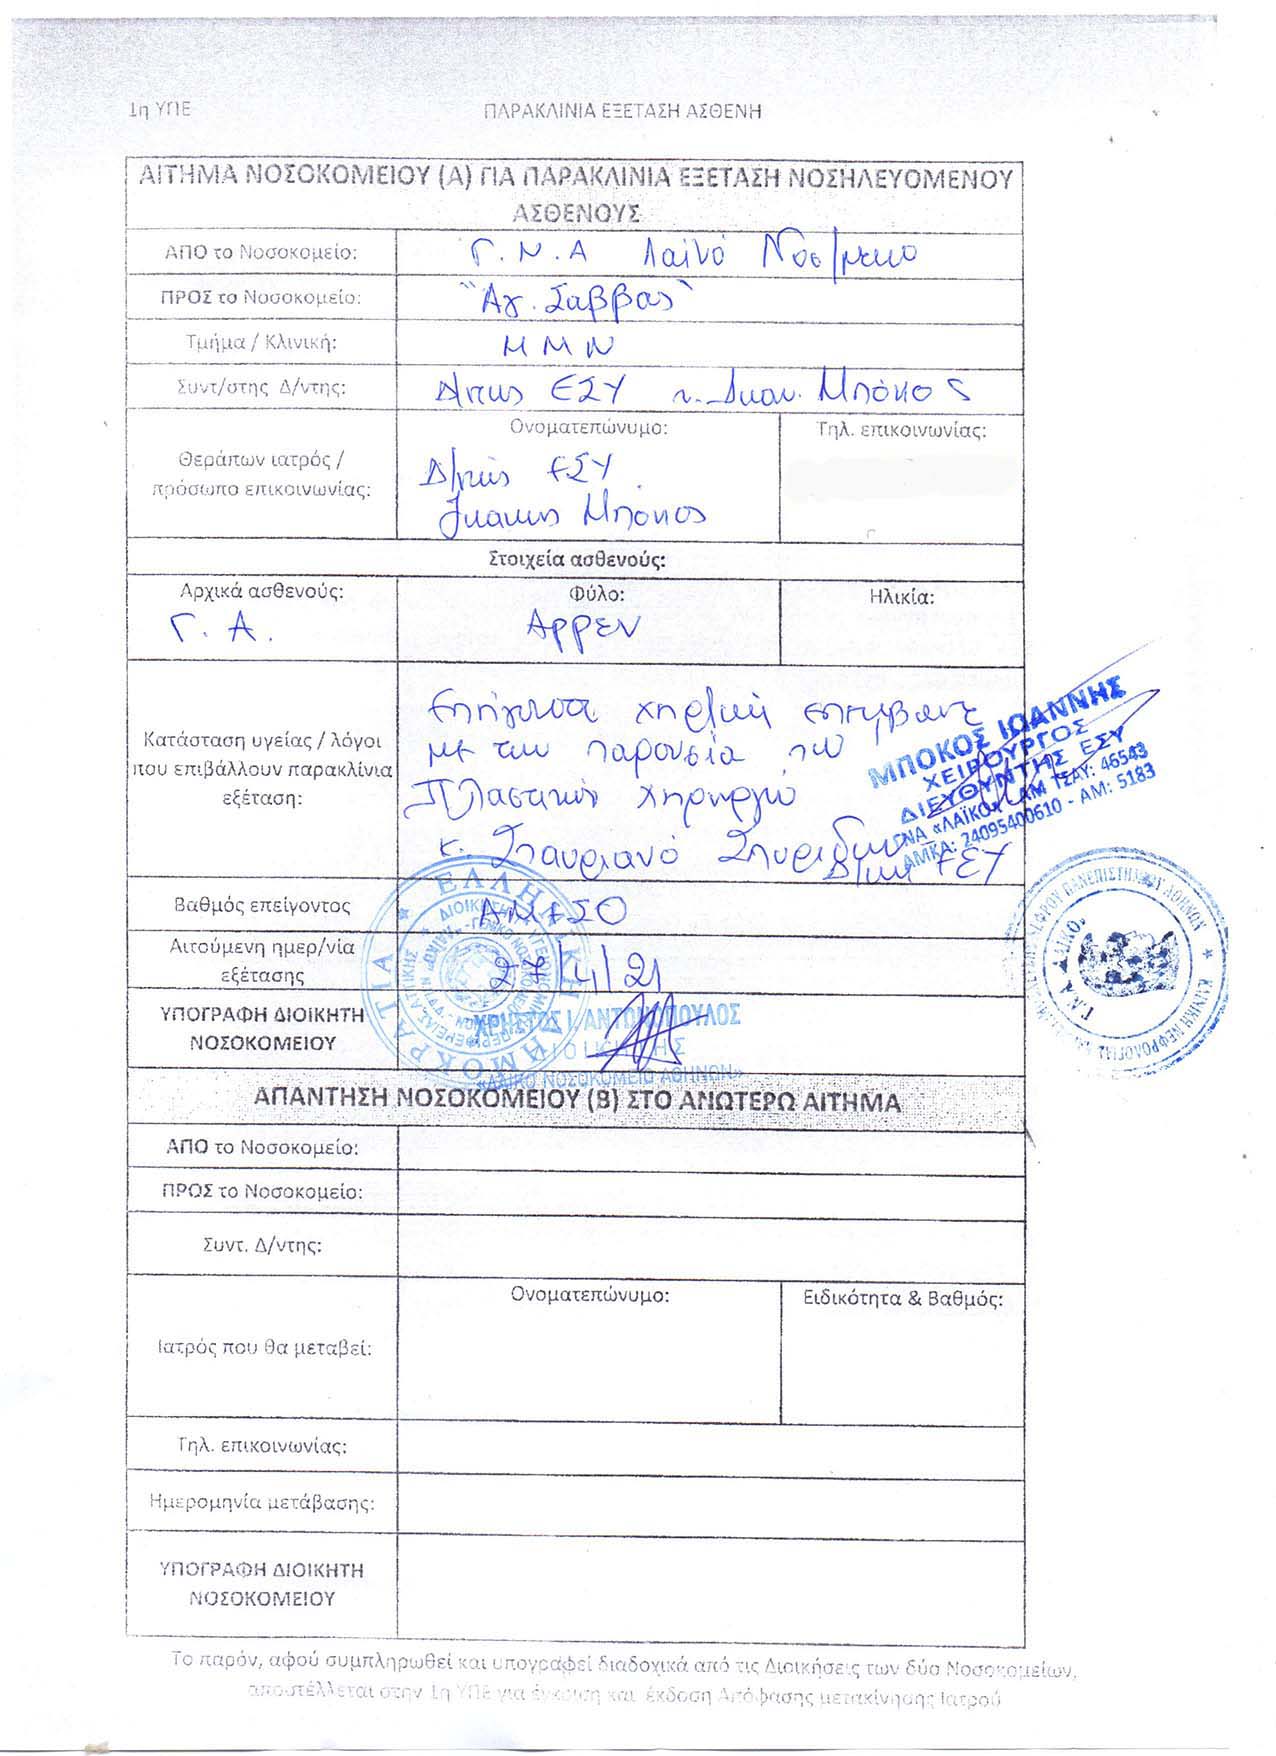 1η ΥΠΕ
ΠΑΡΑΚΛΙΝΙΑ ΕΞΕΤΑΣΗ ΑΣΘΕΝΗ
ΑΙΤΗΜΑ ΝΟΣΟΚΟΜΕΙΟΥ (Α) ΓΙΑ ΠΑΡΑΚΛΙΝΙΑ ΕΞΕΤΑΣΗ ΝΟΣΗΛΕΥΟΜΕΝΟΥ
ΑΣΘΕΝΟΥΣ
ΑΠΟ το Νοσοκομείο: Γ.Ν.Α Λαϊκό
ΠΡΟΣ το Νοσοκομείο: "Αγ. Σαββας"
Τμήμα / Κλινική: ΜΜΝ
Συντ/στης Δ/ντης: ΕΣΥ Μπόκος
Ονοματεπώνυμο:
Τηλ. επικοινωνίας:
Θεράπων ιατρός /
πρόσωπο επικοινωνίας:
Δ/ντής ΕΣΥ
Μπόκος
Στοιχεία ασθενούς:
Αρχικά ασθενούς:
Φύλο:
Ηλικία:
Γ. Α.
Αρρεν
Κατάσταση υγείας / λόγοι
που επιβάλλουν παρακλίνια
εξέταση:
με την παρουσία του
κ. Σταυριανό
Δ/ντή ΕΣΥ
ΜΠΟΚΟΣ ΙΩΑΝΝΗΣ
ΧΕΙΡΟΥΡΓΟΣ
ΔΙΕΥΘΥΝΤΗΣ ΕΣΥ
ΓΝΑ «ΛΑΪΚΟ» - ΑΜ ΤΣΑΥ: 46543
ΑΜΚΑ: 24095400610 - ΑΜ: 5183
Βαθμός επείγοντος ΑΜΕΣΟ
Αιτούμενη ημερ/νία
εξέτασης
27/4/21
ΥΠΟΓΡΑΦΗ ΔΙΟΙΚΗΤΗ
ΝΟΣΟΚΟΜΕΙΟΥ
ΕΛΛΗΝΙΚΗ ΔΗΜΟΚΡΑΤΙΑ
ΧΡΗΣΤΟΣ Ι. ΑΝΤΩΝΟΠΟΥΛΟΣ
ΔΙΟΙΚΗΤΗΣ
«ΛΑΪΚΟ ΝΟΣΟΚΟΜΕΙΟ ΑΘΗΝΩΝ»
ΑΠΑΝΤΗΣΗ ΝΟΣΟΚΟΜΕΙΟΥ (Β) ΣΤΟ ΑΝΩΤΕΡΩ ΑΙΤΗΜΑ
ΑΠΟ το Νοσοκομείο:
ΠΡΟΣ το Νοσοκομείο:
Συντ. Δ/ντης:
Ονοματεπώνυμο:
Ειδικότητα & Βαθμός:
Ιατρός που θα μεταβεί:
Τηλ. επικοινωνίας:
Ημερομηνία μετάβασης:
ΥΠΟΓΡΑΦΗ ΔΙΟΙΚΗΤΗ
ΝΟΣΟΚΟΜΕΙΟΥ
Το παρόν, αφού συμπληρωθεί και υπογραφεί διαδοχικά από τις Διοικήσεις των δύο Νοσοκομείων,
αποστέλλεται στην 1η ΥΠΕ για έγκριση και έκδοση Απόφασης μετακίνησης Ιατρού